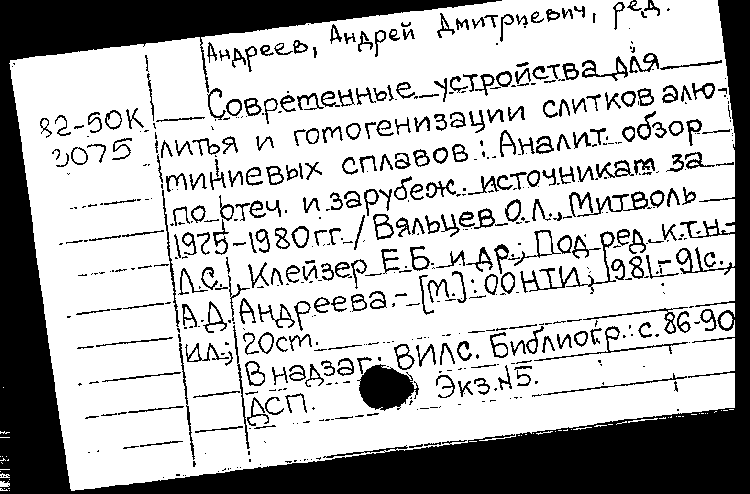 Андреев, Андрей Дмитриевич, ред.
82-50К
3075
Современные устройства для
литья и гомогенизации слитков алю-
миниевых сплавов: Аналит. обзор
по отеч. и зарубеж. источникам за
1975-1980гг. / Вяльцев О.Л., Митволь
Л.С., Клейзер Е.Б. и др.; Под ред. к.т.н.
А.Д. Андреева.- [М.]: ООНТИ, 1981.-91с.,
ил.; 20см.
В надзаг: ВИЛС. Библиогр.: с. 86-90
ДСП. Экз.№5.